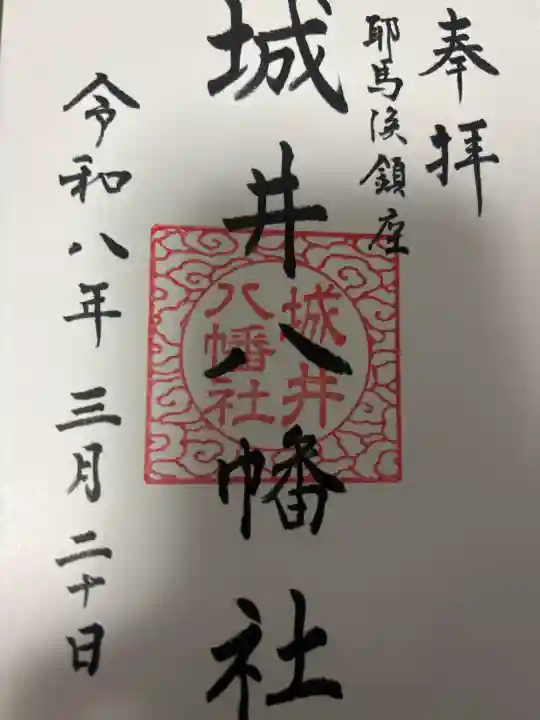 奉拝
耶馬渓鎮座
城井八幡社
城井
八幡社
令和八年 三月 二十日